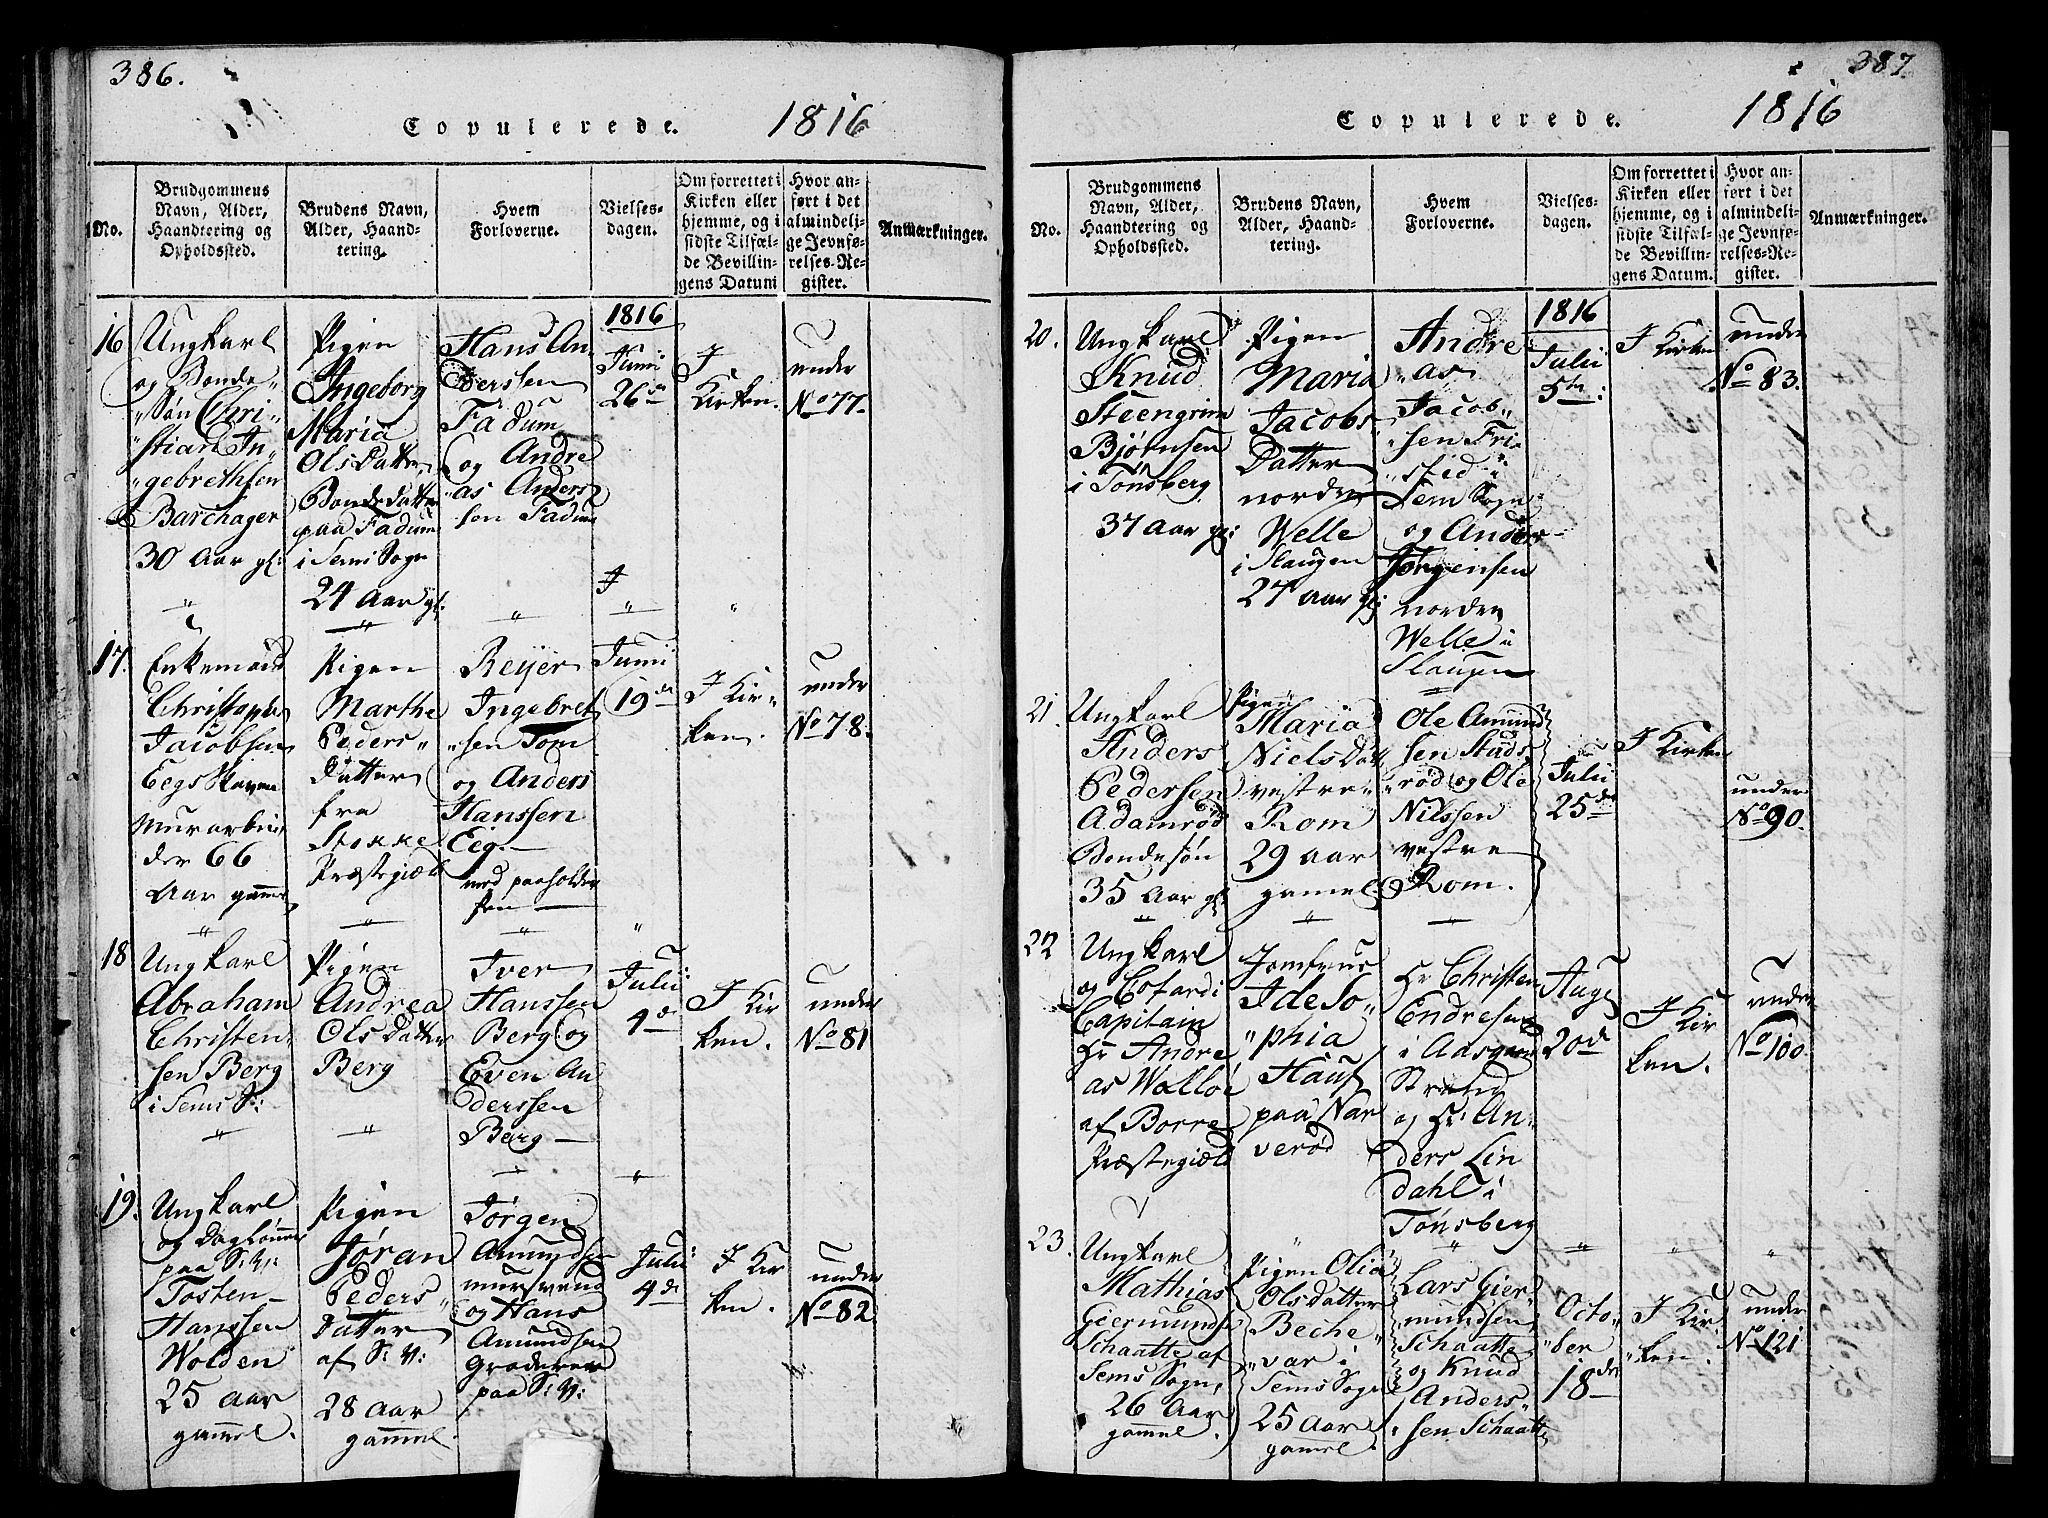 386.
Copulerede. 1816
No.
Brudgommens Navn, Alder, Haandtering og Opholdssted.
Brudens Navn, Alder, Haandtering.
Hvem Forloverne.
Vielsesdagen.
Om forrettet i Kirken eller hjemme, og i sidste Tilfælde Bevillingens Datum
Hvor anført i det almindelige Jevnførelses-Register.
Anmærkninger.
1816
16
Ungkarl
og Bonde
Søn Chri-
stian In-
gebrethsen
Barchager
30 Aar gl:
Pigen
Ingeborg
Maria
OlsDatter
BondeDatter
paa Fadum
i Sems Sogn
24 Aar gl:
Hans An-
derssen
Fadum
og Andre
as Anders
sen Fadum
Junii
26de
I
Kirken.
under
No 77.
17.
Enkemand
Christopher
Jacobsen
Eegs Skoven
Murarbei
der 66
Aar gammel
Pigen
Marthe
Peders
Datter
fra
Stokke
Præstegield
Reyer
Ingebret
sen Tom
og Anders
Hanssen
Eig
med paaholden
Pen
Junii
19de
I Kir-
ken.
under
No 78.
18
Ungkarl
Abraham
Christen-
sen Berg
i Sems S:
Pigen
Andrea
OlsDatter
Berg
Iver
Hanssen
Berg og
Even An
derssen
Berg
Julii
4de
I Kir
ken.
under
No 81
19.
Ungkarl
og Daglønner
paa S: V:
Tosten
Hanssen
Wolden
25 aar
gammel.
Pigen
Jøran
Peders
Datter
af S: V:
28 aar
gammel
Jørgen
Amundsen
mursvend
og Hans
Amundsen
Graderen
paa S: V:
Julii
4de
I Kir
ken.
under
No 82
387.
Copulerede. 1816
No.
Brudgommens Navn, Alder, Haandtering og Opholdssted.
Brudens Navn, Alder, Haandtering.
Hvem Forloverne.
Vielsesdagen.
Om forrettet i Kirken eller hjemme, og i sidste Tilfælde Bevillingens Datum.
Hvor anført i det almindelige Jevnførelses-Register.
Anmærkninger.
1816
20.
Ungkarl
Knud
Steengrim
Bjørnsen
i Tønsberg
37 Aar gl:
Pigen
Maria
Jacobs
Datter
nordre
Welle
i Slaugen
27 aar gl:
Andre
as
Jacob
sen Fri
stid i
Sem Sogn
og Anders
Jørgensen
nordre
Welle i
Slaugen
Julii
5te:
I Kirken
under
No 83.
21.
Ungkarl
Anders
Pedersen
Adamrød
Bondesøn
35 Aar gl:
Pigen
Maria
NielsDatt
vestre
Rom
29 aar
gamel.
Ole Amund
sen Stads
rød og Ole
Nilssen
vestre
Rom.
Julii
25de
I Kirken
under
No 90.
22
Ungkarl
og Cofardi
Capitain
Hr Andre
as Walløe
af Borre
Præstegield
Jomfrue
Ide So-
phia
Hauf
paa Nar
verød
Hr Christen
Endresen
i Aasgaard
Strand
og Hr: An-
ders Lin
dahl i
Tønsberg
Aug
20de
I Kir
ken.
under
No 100.
23.
Ungkarl
Mathias
Giermundse
Schaatte af
Sems Sogn,
26 Aar
gammel.
Pigen Olia
Olsdatter
Beche
var i
Sems Sogn
25 Aar
gamel.
Lars Gier-
mundsen
Schaatte
og Knud
Anders
sen Schaatte
Octo-
ber
18de
I Kir
ken.
under
No 121